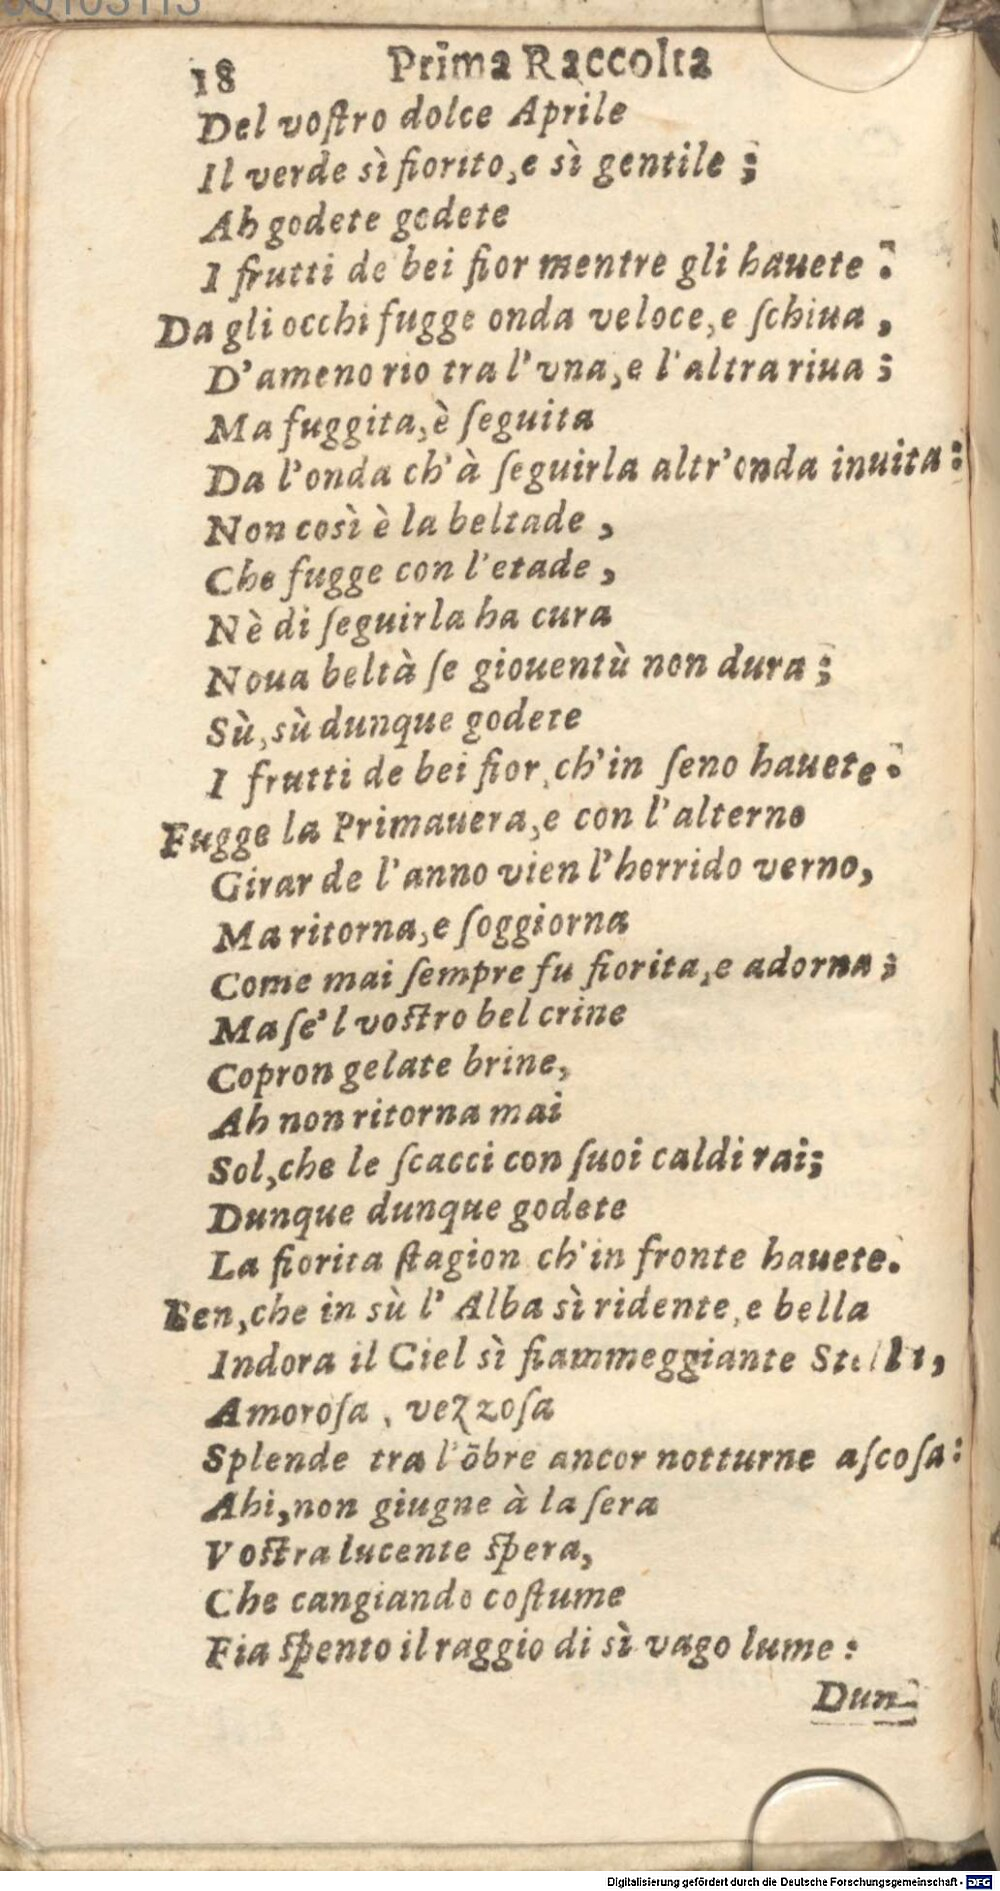 18 Prima Raccolta
Del voſtro dolce Aprile
Il verde sì fiorito, e sì gentile ;
Ah godete godete
I frutti de bei fior mentre gli hauete .
Da gli occhi fugge onda veloce, e ſchiua ,
D'ameno rio tra l'vna, e l'altra riua ;
Ma fuggita, è ſeguita
Da l'onda ch'à ſeguirla altr'onda inuita :
Non così è la beltade ,
Che fugge con l'etade ,
Nè di ſeguirla ha cura
Noua beltà ſe giouentù non dura ;
Sù, sù dunque godete
I frutti de bei fior, ch'in ſeno hauete .
Fugge la Primauera, e con l'alterno
Girar de l'anno vien l'horrido verno,
Ma ritorna, e ſoggiorna
Come mai ſempre fu fiorita, e adorna ;
Ma ſe'l voſtro bel crine
Copron gelate brine,
Ah non ritorna mai
Sol, che le ſcacci con ſuoi caldi rai;
Dunque dunque godete
La fiorita ſtagion ch'in fronte hauete.
Ben, che in sù l'Alba sì ridente, e bella
Indora il Ciel sì fiammeggiante
Amoroſa, vezzoſa
Splende tra l'õbre ancor notturne aſcoſa :
Ahi, non giugne à la ſera
Voſtra lucente ſpera,
Che cangiando coſtume
Fia ſpento il raggio di sì vago lume :
Dun-
Digitalisierung gefördert durch die Deutsche Forschungsgemeinschaft - DFG